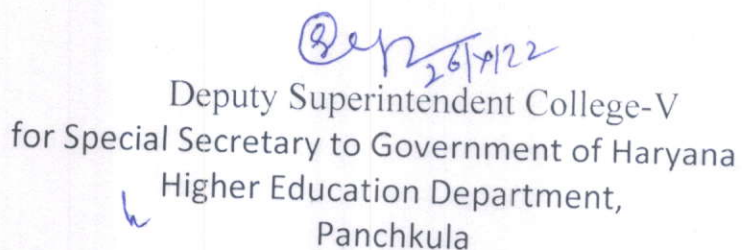 Deputy Superintendent College-V
for Special Secretary to Government of Haryana
Higher Education Department,
Panchkula